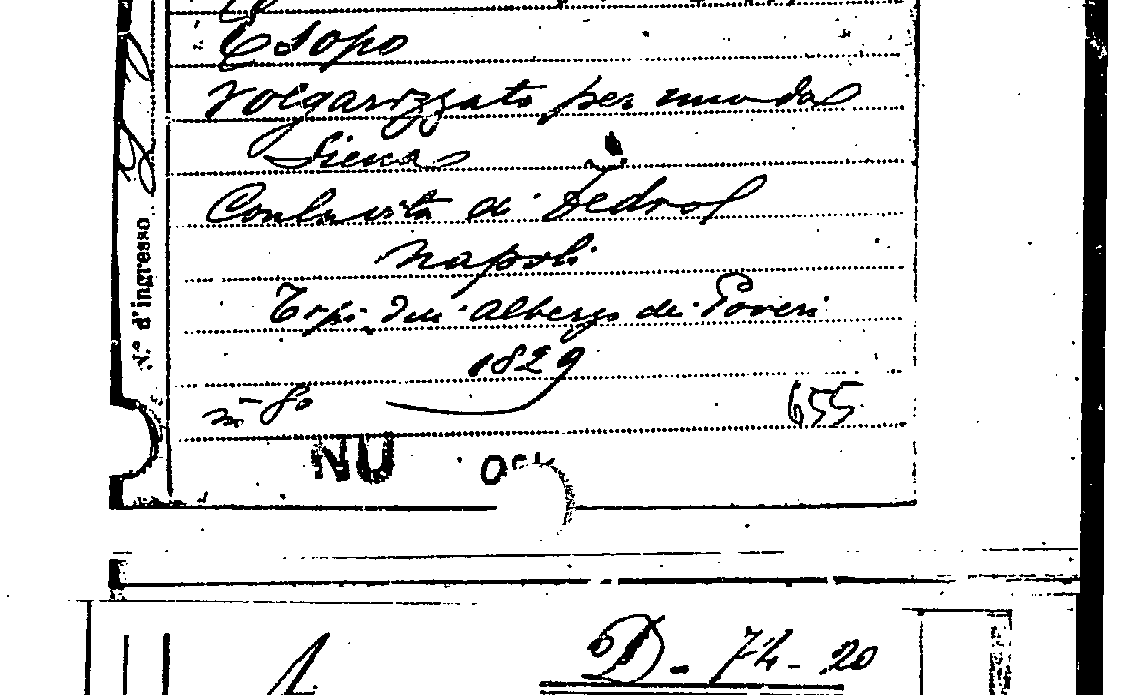 Esopo
Volgarizzato per uno da
Siena
Con la vita di Fedro
Napoli
Tipi dell' Albergo dei Poveri
1829
in 8º 655
NU
N.º d'ingresso
D. - 74 - 20